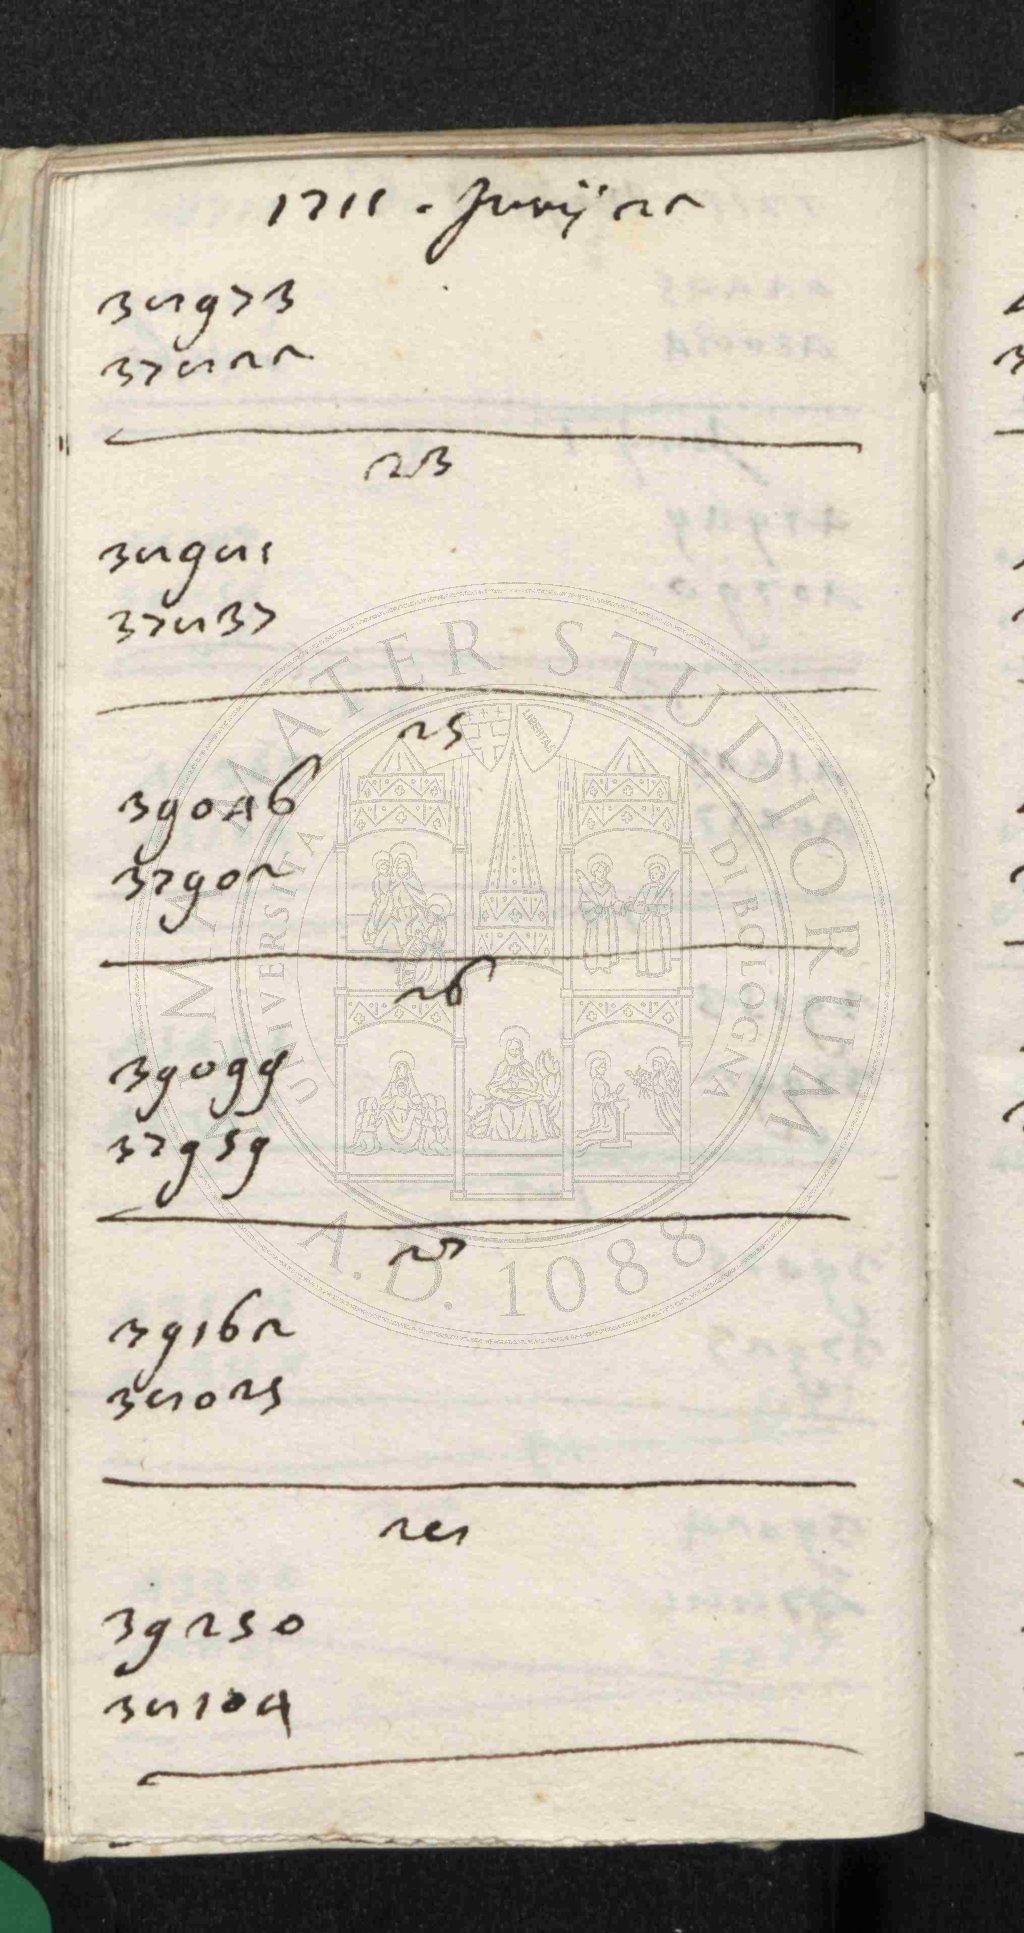 1711 . Junij 22
38973
37822
23
38981
37837
25
39046
37902
26
39099
37959
27
39162
38025
28
39250
38104
ALMA MATER STUDIORUM
UNIVERSITÀ DI BOLOGNA
LIBERTAS
A.D. 1088